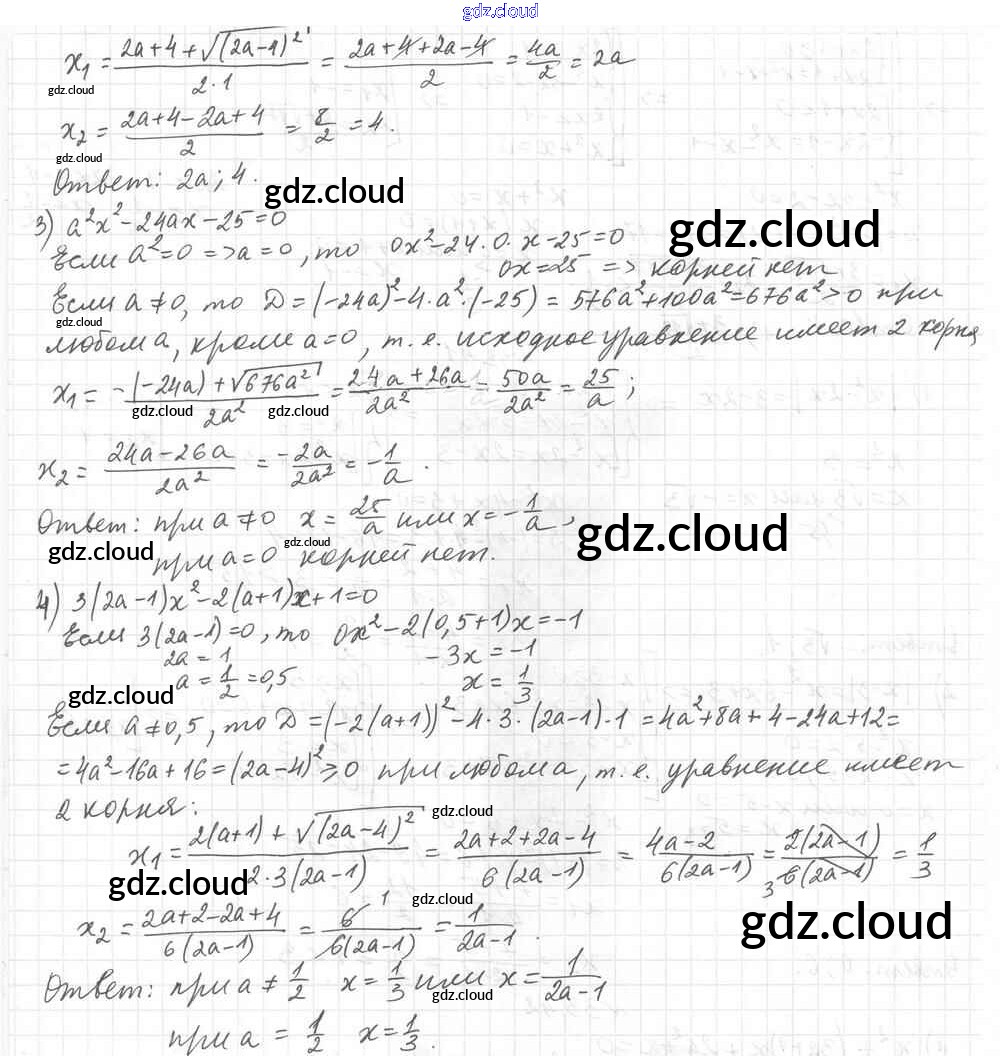 gdz.cloud
x₁ = (2a+4+√(2a-4)²)/(2·1) = (2a+4+2a-4)/2 = 4a/2 = 2a
gdz.cloud
x₂ = (2a+4-2a+4)/2 = 8/2 = 4.
gdz.cloud
Ответ: 2a; 4.
gdz.cloud
3) a²x²-24ax-25=0
gdz.cloud
Если a²=0 => a=0, то 0x²-24·0·x-25=0
0x=25 => корней нет
Если a≠0, то D=(-24a)²-4·a²·(-25) = 576a²+100a²=676a²>0 при
gdz.cloud
любом a, кроме a=0, т.е. исходное уравнение имеет 2 корня
x₁ = (-(-24a)+√676a²)/2a² = (24a+26a)/2a² = 50a/2a² = 25/a;
gdz.cloud gdz.cloud
x₂ = (24a-26a)/2a² = -2a/2a² = -1/a.
Ответ: при a≠0 x = 25/a или x = -1/a,
gdz.cloud gdz.cloud gdz.cloud
при a=0 корней нет.
4) 3(2a-1)x²-2(a+1)x+1=0
Если 3(2a-1)=0, то 0x²-2(0,5+1)x=-1
2a = 1 -3x = -1
a = 1/2 = 0,5 x = 1/3
gdz.cloud
Если a≠0,5, то D=(-2(a+1))²-4·3·(2a-1)·1 = 4a²+8a+4-24a+12=
=4a²-16a+16=(2a-4)²≥0 при любом a, т.е. уравнение имеет
2 корня:
gdz.cloud
x₁ = (2(a+1)+√(2a-4)²)/(2·3(2a-1)) = (2a+2+2a-4)/(6(2a-1)) = (4a-2)/(6(2a-1)) = 2(2a-1)/(6(2a-1)) 3 = 1/3
gdz.cloud
gdz.cloud
x₂ = (2a+2-2a+4)/(6(2a-1)) = 6 1/(6(2a-1)) = 1/(2a-1).
gdz.cloud
Ответ: при a ≠ 1/2 x = 1/3 или x = 1/(2a-1)
gdz.cloud
при a = 1/2 x = 1/3.